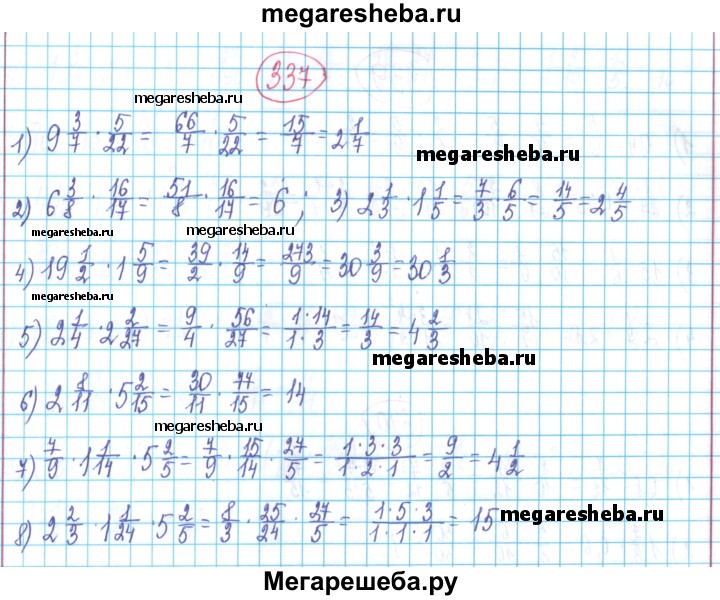 megaresheba.ru
337
megaresheba.ru
1) 9 3/7 · 5/22 = 66/7 · 5/22 = 15/7 = 2 1/7
megaresheba.ru
2) 6 3/8 · 16/17 = 51/8 · 16/17 = 6 ; 3) 2 1/3 · 1 1/5 = 7/3 · 6/5 = 14/5 = 2 4/5
megaresheba.ru
megaresheba.ru
4) 19 1/2 · 1 5/9 = 39/2 · 14/9 = 273/9 = 30 3/9 = 30 1/3
megaresheba.ru
5) 2 1/4 · 2 2/27 = 9/4 · 56/27 = 1·14/1·3 = 14/3 = 4 2/3
megaresheba.ru
6) 2 8/11 · 5 2/15 = 30/11 · 77/15 = 14
megaresheba.ru
7) 7/9 · 1 1/14 · 5 2/5 = 7/9 · 15/14 · 27/5 = 1·3·3/1·2·1 = 9/2 = 4 1/2
8) 2 2/3 · 1 1/24 · 5 2/5 = 8/3 · 25/24 · 27/5 = 1·5·3/1·1·1 = 15
megaresheba.ru
Мегарешеба.ру